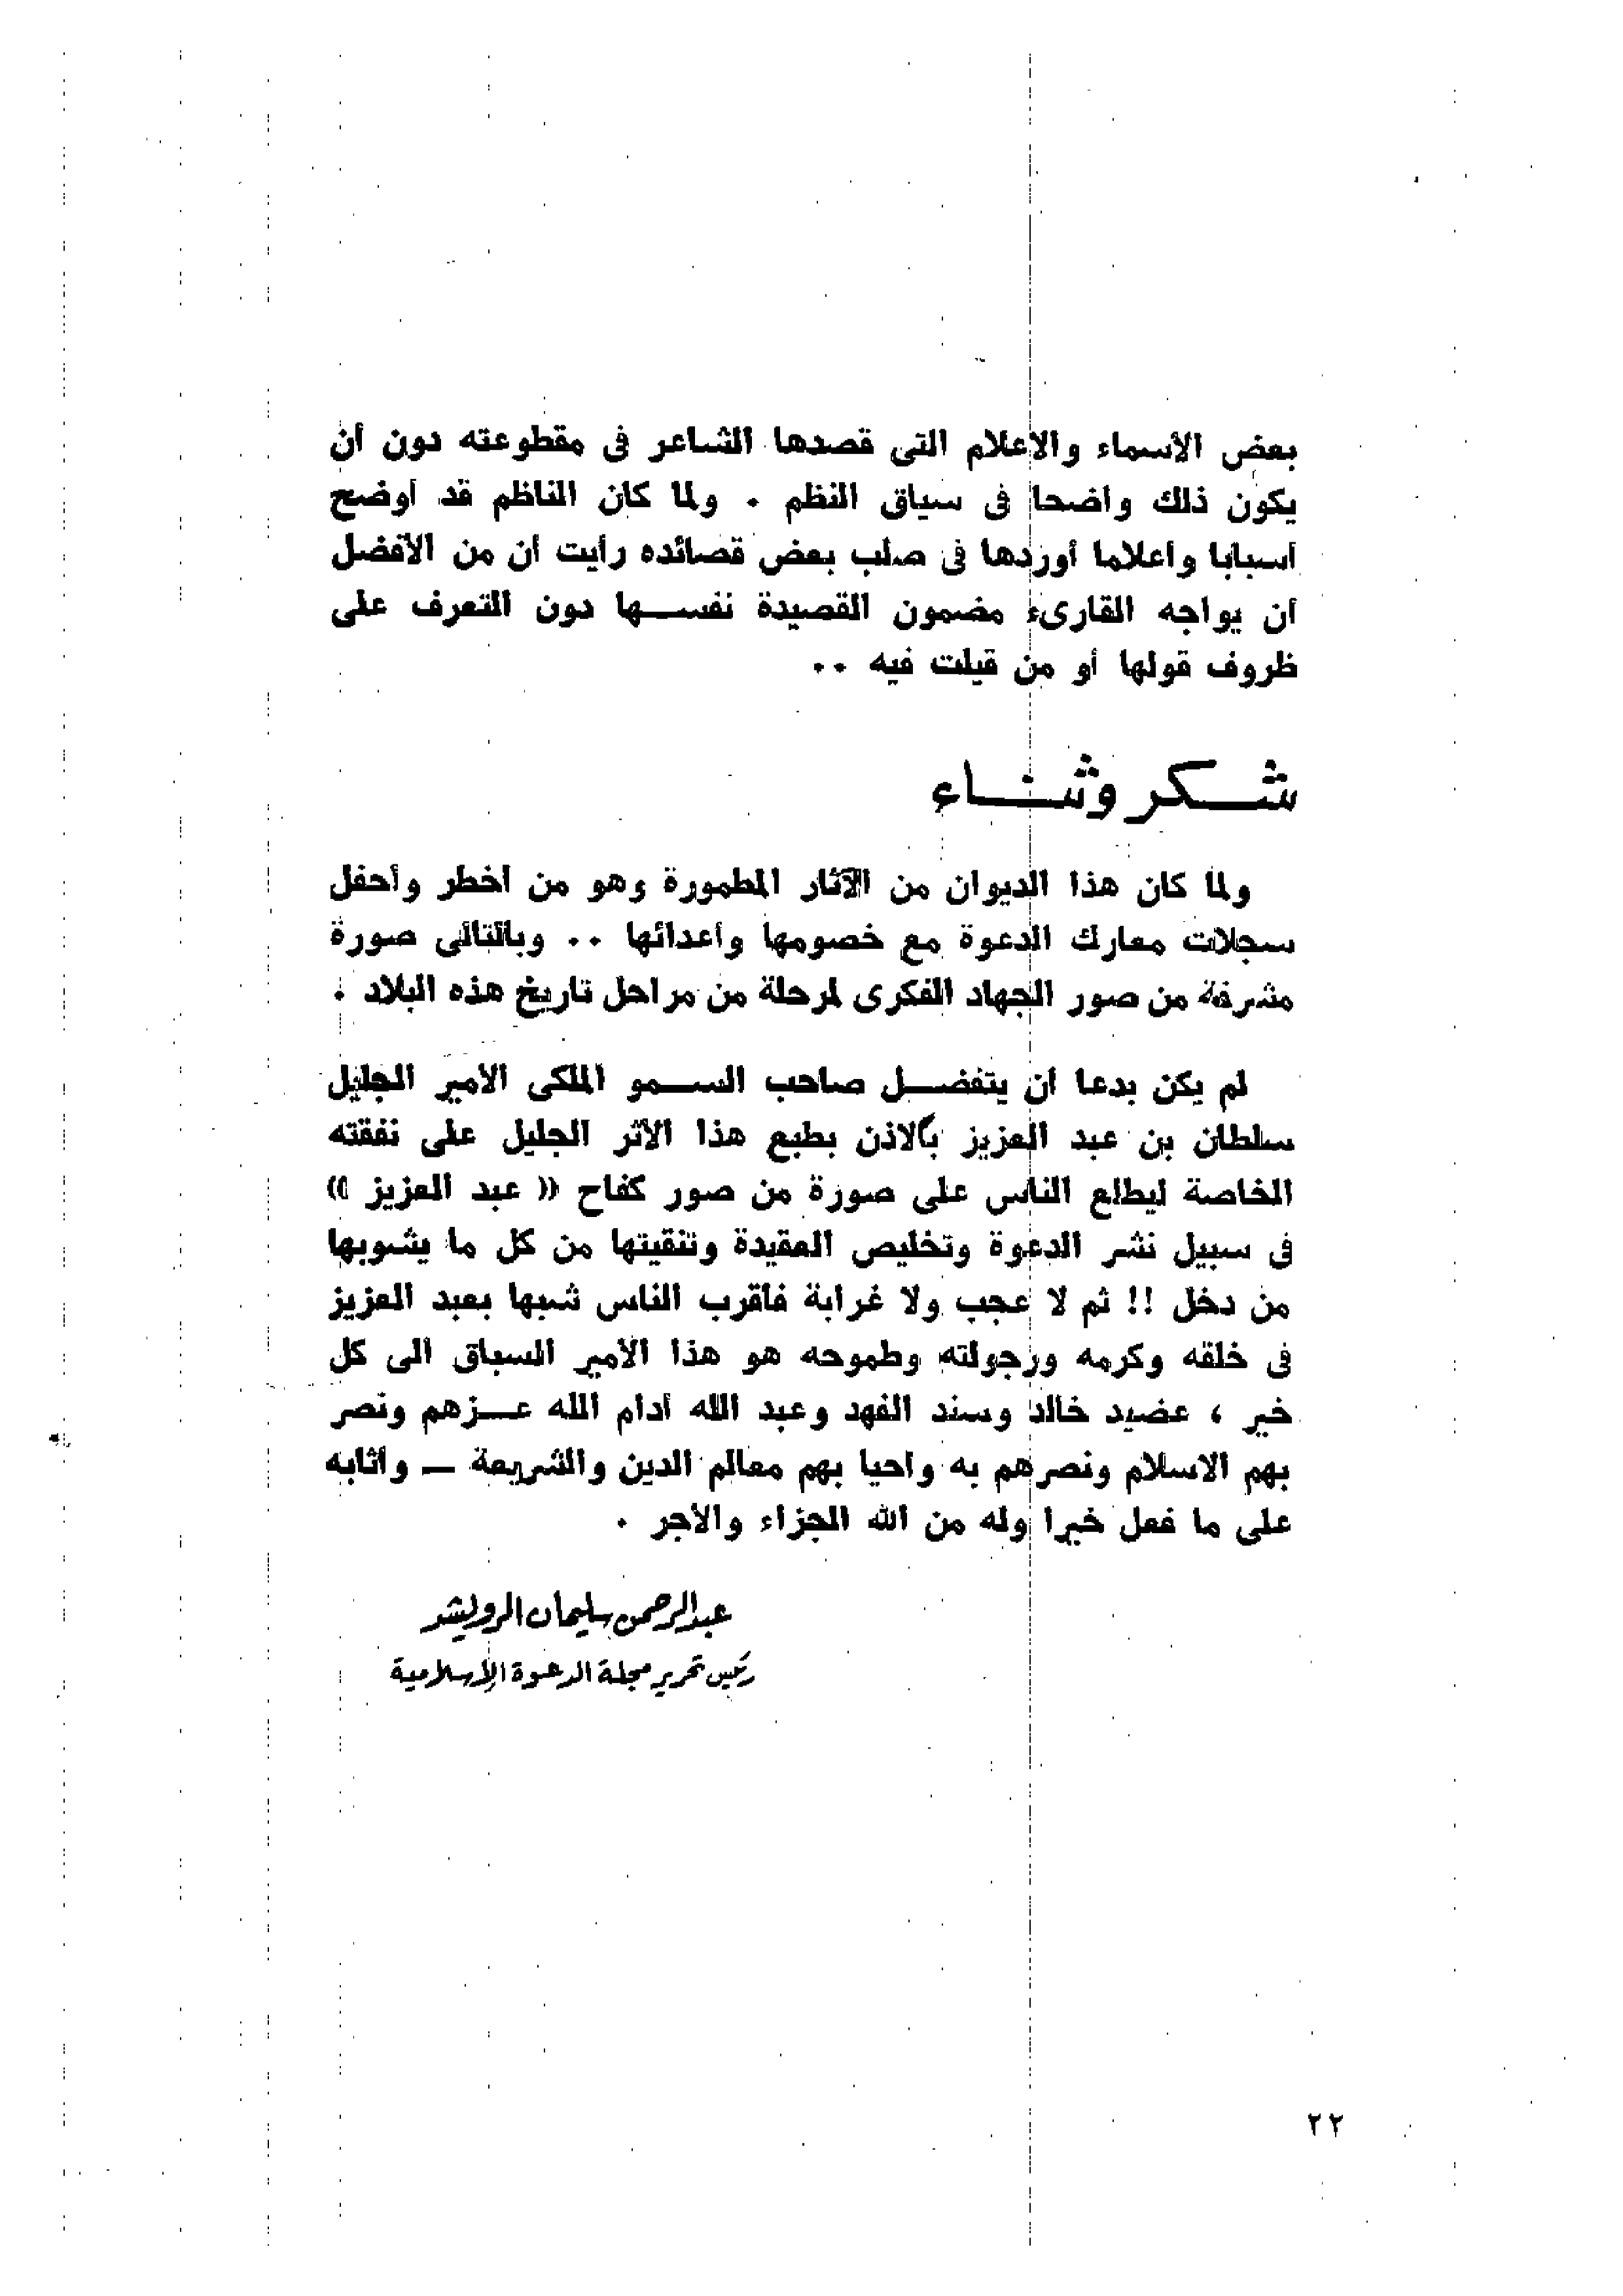 بعض الأسماء والاعلام التى قصدها الشاعر فى مقطوعته دون أن
يكون ذلك واضحا فى سياق النظم . ولما كان الناظم قد أوضح
أسبابا وأعلاما أوردها فى صلب بعض قصائده رأيت أن من الأفضل
أن يواجه القارىء مضمون القصيدة نفسها دون التعرف على
ظروف قولها أو من قيلت فيه ..
شكر وثناء
ولما كان هذا الديوان من الآثار المطمورة وهو من أخطر وأحفل
سجلات معارك الدعوة مع خصومها وأعدائها .. وبالتالى صورة
مشرفة من صور الجهاد الفكرى لمرحلة من مراحل تاريخ هذه البلاد .
لم يكن بدعا أن يتفضل صاحب السمو الملكى الأمير الجليل
سلطان بن عبد العزيز بالاذن بطبع هذا الأثر الجليل على نفقته
الخاصة ليطلع الناس على صورة من صور كفاح « عبد العزيز »
فى سبيل نشر الدعوة وتخليص العقيدة وتنقيتها من كل ما يشوبها
من دخل !! ثم لا عجب ولا غرابة فأقرب الناس شبها بعبد العزيز
فى خلقه وكرمه ورجولته وطموحه هو هذا الأمير السباق الى كل
خير ، عضيد خالد وسند الفهد وعبد الله أدام الله عزهم ونصر
بهم الاسلام ونصرهم به وأحيا بهم معالم الدين والشريعة – وأثابه
على ما فعل خيرا وله من الله الجزاء والأجر .
عبدالرحمن سليمان الرويشد
رئيس تحرير مجلة الدعوة الإسلامية
٢٢